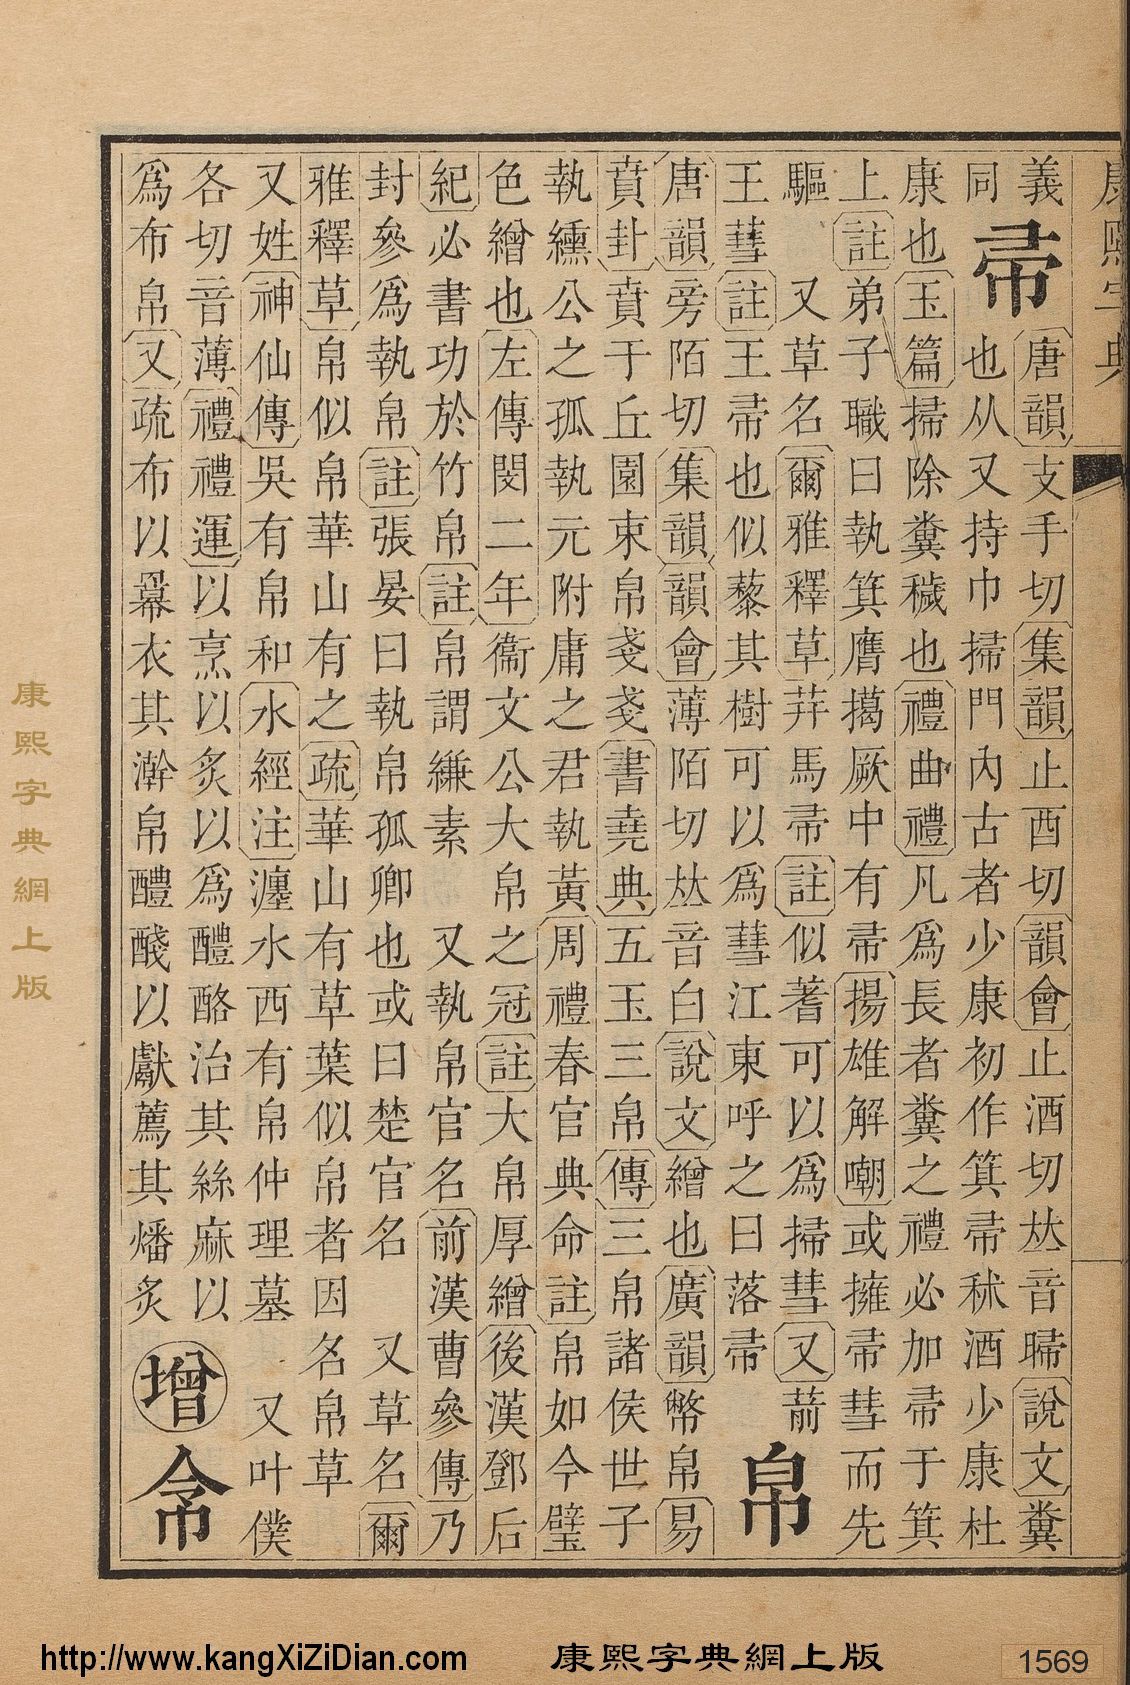 康熙字典
義
帚
唐韻支手切集韻止酉切韻會止酒切𠀤音說文糞
同也从又持巾掃門內古者少康初作箕帚秫酒少康杜
康也玉篇掃除糞穢也禮曲禮凡爲長者糞之禮必加帚于箕
上註弟子職曰執箕膺擖厥中有帚揚雄解嘲或擁帚彗而先
驅 又草名爾雅釋草荓馬帚註似蓍可以爲掃彗又葥
王彗註王帚也似藜其樹可以爲彗江東呼之曰落帚
帛
唐韻旁陌切集韻韻會薄陌切𠀤音白說文繒也廣韻幣帛易
賁卦賁于丘園束帛戔戔書堯典五玉三帛傳三帛諸侯世子
執纁公之孤執元附庸之君執黃周禮春官典命註帛如今璧
色繒也左傳閔二年衞文公大帛之冠註大帛厚繒後漢鄧后
紀必書功於竹帛註帛謂縑素 又執帛官名前漢曹參傳乃
封參爲執帛註張晏曰執帛孤卿也或曰楚官名 又草名爾
雅釋草帛似帛華山有之疏華山有草葉似帛者因名帛草
又姓神仙傳吳有帛和水經注瀍水西有帛仲理墓 又叶僕
各切音薄禮禮運以烹以炙以爲醴酪治其絲麻以
爲布帛又疏布以羃衣其澣帛醴醆以獻薦其燔炙
增
康熙字典網上版
http://www.kangXiZiDian.com 康熙字典網上版 1569